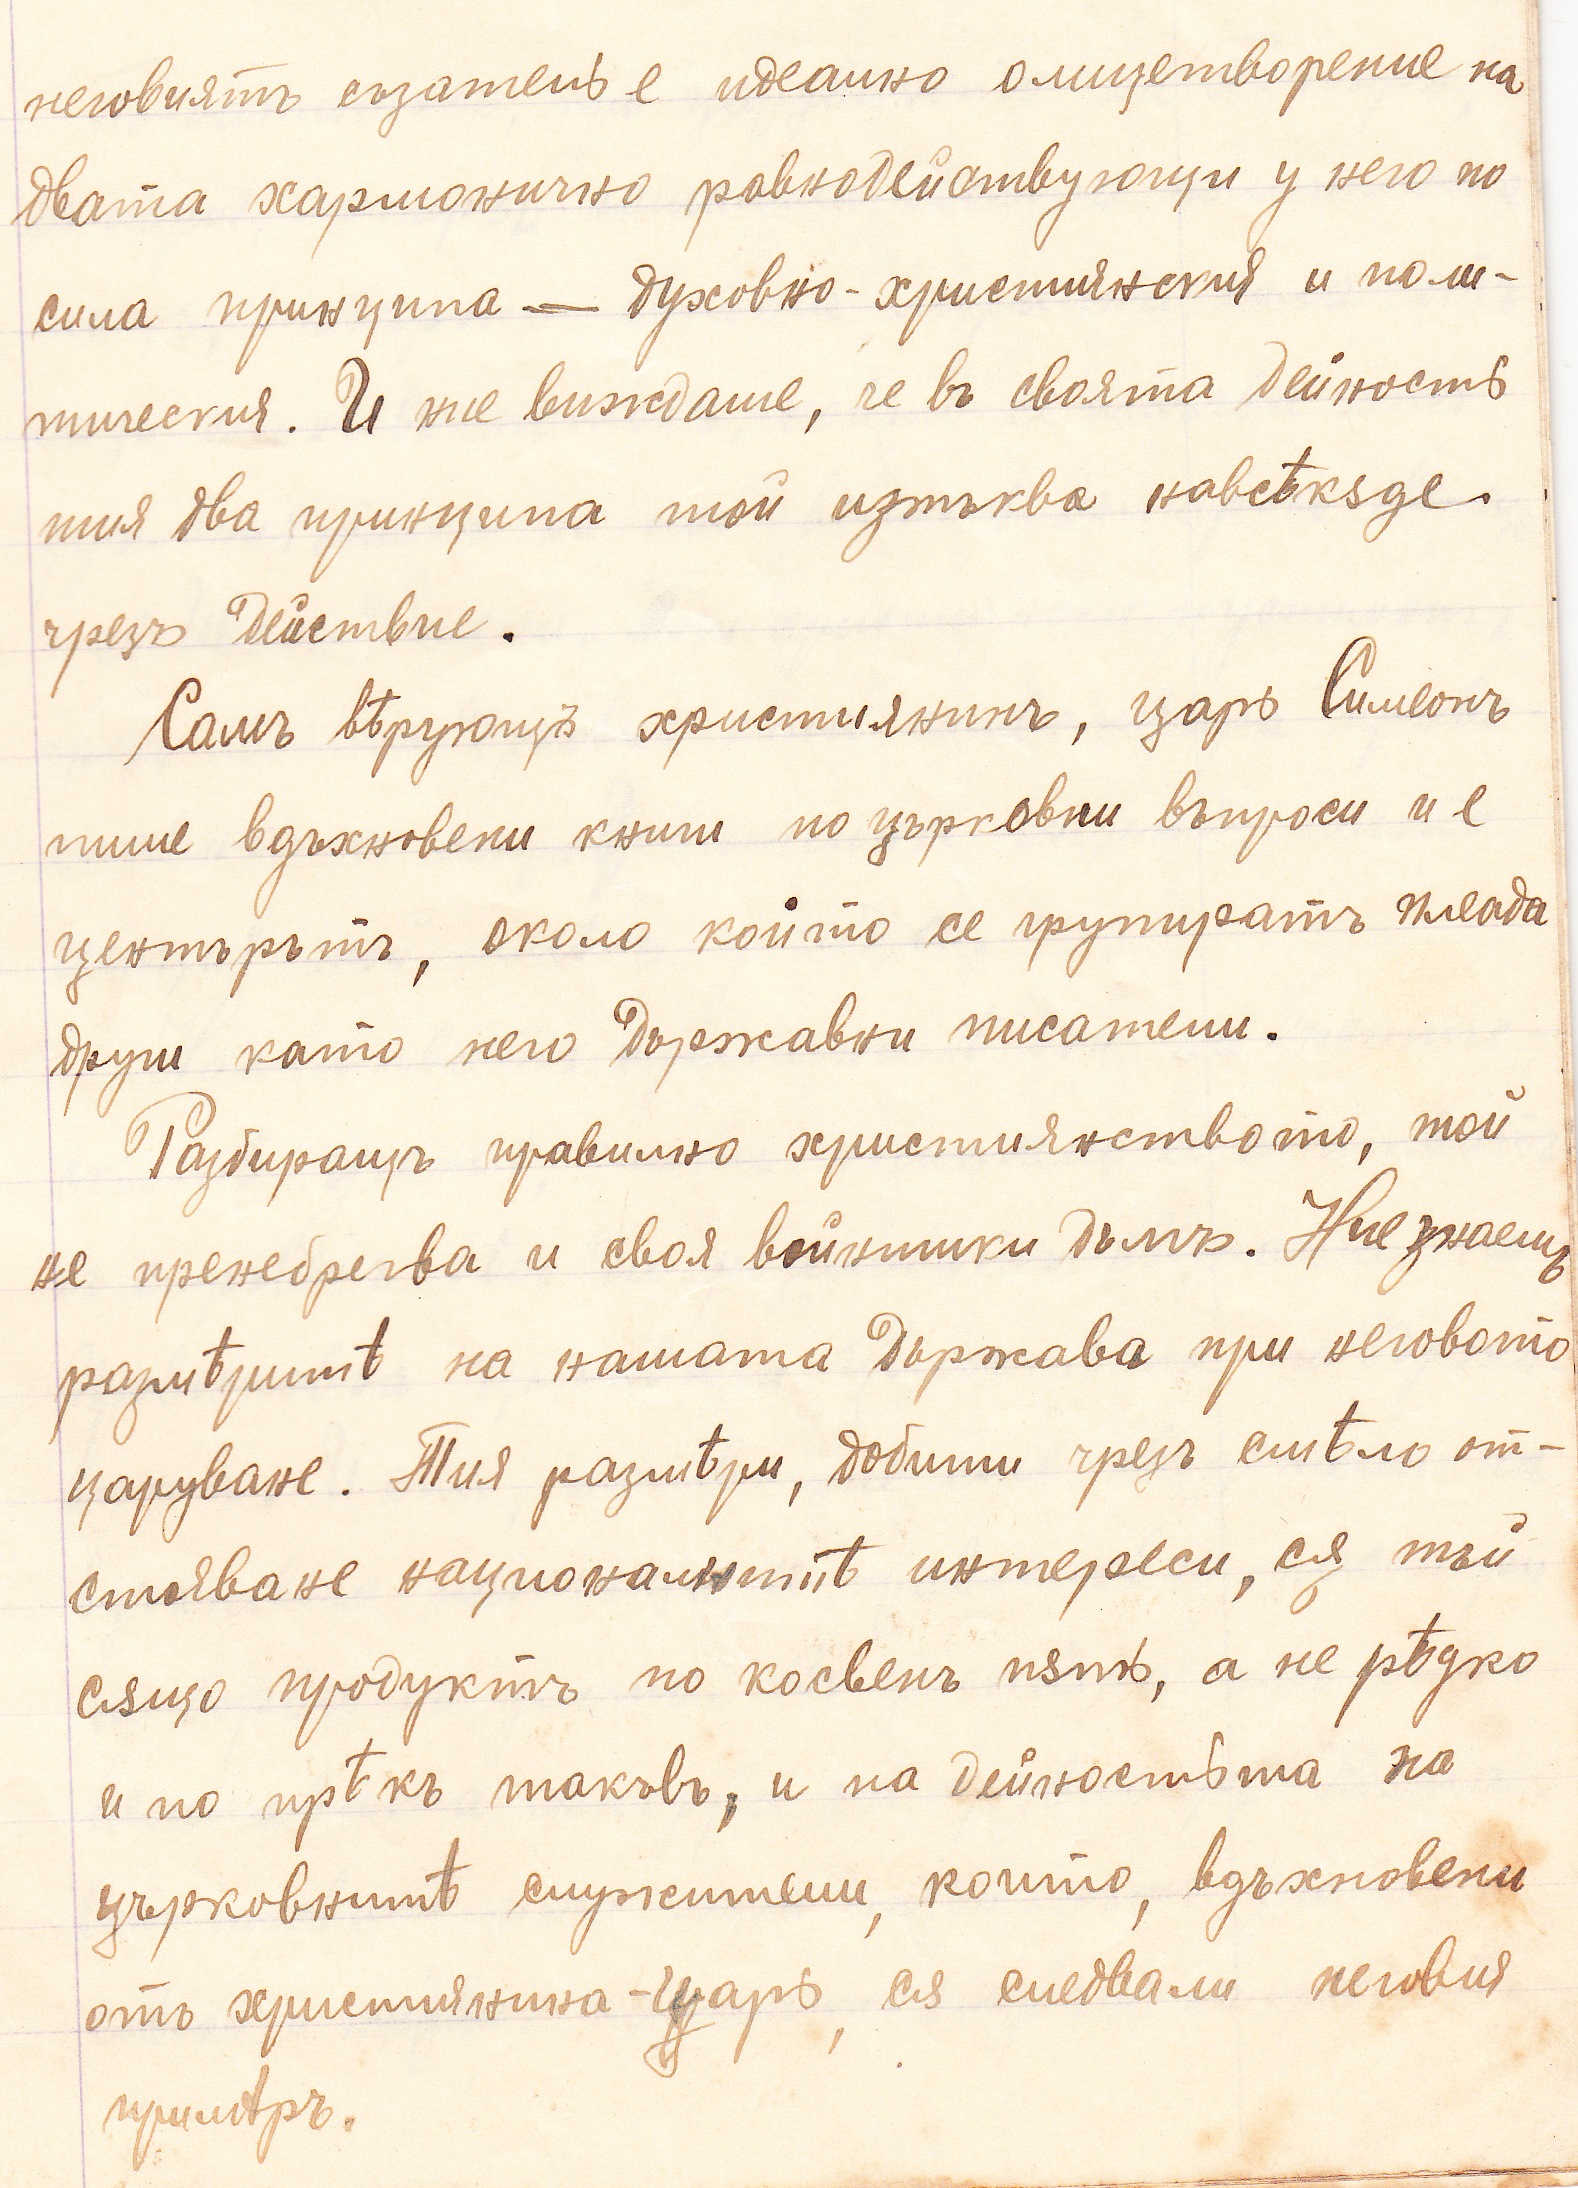 неговиятъ създатель е идеално олицетворение на
двата хармонично равнодействующи у него по
сила принципа — духовно-християнския и поли-
тическия. И ние виждаме, че въ своята дейность
тия два принципа той изтъква навсѣкѫде
чрезъ действие.
Самъ вѣрующъ християнинъ, царь Симеонъ
пише вдъхновени книги по църковни въпроси и е
центърътъ, около който се групиратъ плеада
други като него държавни писатели.
Разбиращъ правилно християнството, той
не пренебрегва и своя войнишки дългъ. Ние знаемъ
размѣритѣ на нашата държава при неговото
царуване. Тия размѣри, добити чрезъ смѣло от-
стояване националнитѣ интереси, сѫ тъй
сѫщо продуктъ по косвенъ пѫть, а не рѣдко
и по прѣкъ такъвъ, и на дейностьта на
църковнитѣ служители, които, вдъхновени
отъ християнина-царь, сѫ следвали неговия
примѣръ.